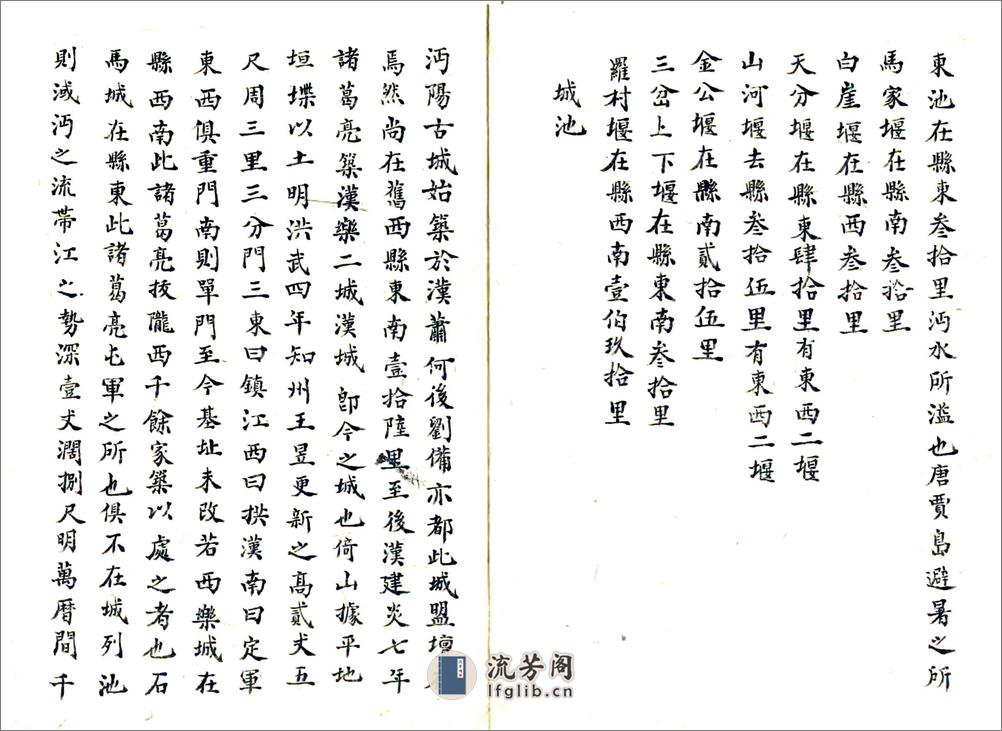 東池在縣東叁拾里沔水所溢也唐賈島避暑之所
馬家堰在縣南叁拾里
白崖堰在縣西叁拾里
天分堰在縣東肆拾里有東西二堰
山河堰去縣叁拾伍里有東西二堰
金公堰在縣南貳拾伍里
三岔上下堰在縣東南叁拾里
羅村堰在縣西南壹伯玖拾里
城池
沔陽古城始築於漢蕭何後劉備亦都此城盟壇
焉然尚在舊西縣東南壹拾陸里至後漢建炎七年
諸葛亮築漢樂二城漢城卽今之城也倚山據平地
垣堞以土明洪武四年知州王昱更新之高貳丈五
尺周三里三分門三東曰鎮江西曰拱漢南曰定軍
東西俱重門南則單門至今基址未改若西樂城在
縣西南此諸葛亮拔隴西千餘家築以處之者也石
馬城在縣東此諸葛亮屯軍之所也俱不在城列池
則淢沔之流帶江之勢深壹丈濶捌尺明萬曆間千
流芳阁
lfglib.cn